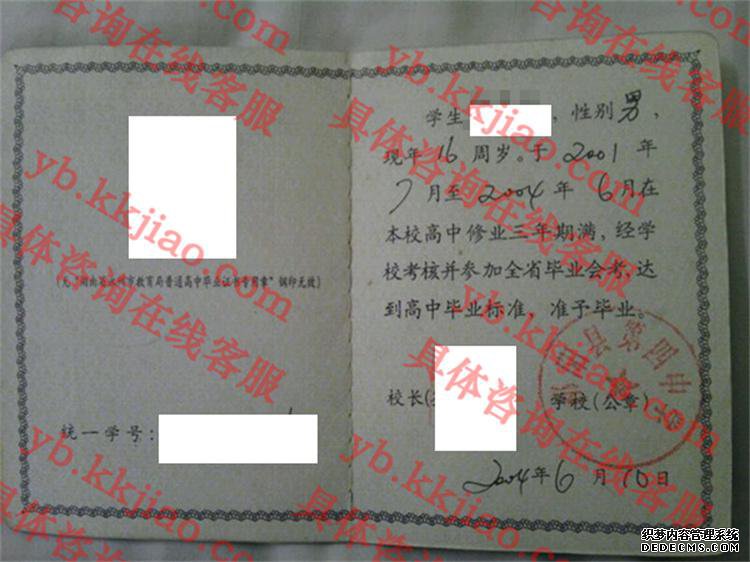 (无"湖南省永州市教育局普通高中毕业证书专用章"钢印无效)
统一学号:
学生 ，性别男，
现年16周岁。于2001年
7月至2004年6月在
本校高中修业三年期满，经学
校考核并参加全省毕业会考，达
到高中毕业标准，准予毕业。
校长( 学校(公章)
县第四中
2004年6月10日
yb.kkjiao.com
具体咨询在线客服
织梦内容管理系统
DEDECMS.COM